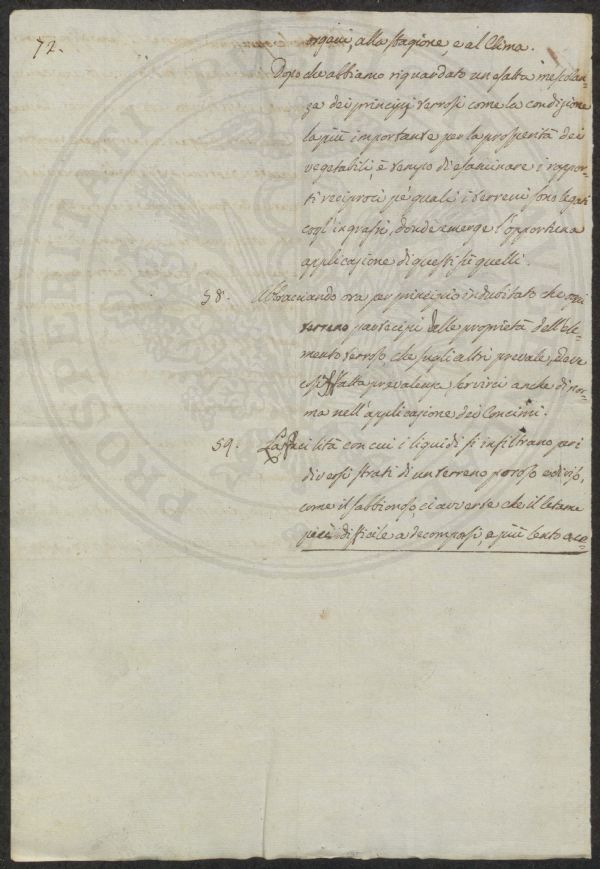 72.
organi, alla stagione, e al Clima.
Dopo che abbiamo riguardato un esatta mescolan-
za dei principj terrosi come la condizione
la più importante per la prosperità dei
vegetabili, è tempo di esaminare i rappor-
ti reciproci pe' quali i terreni sono legati
cogl' ingrassi, donde emerge l'opportuna
applicazione di questi sù quelli.
58. Abbracciando ora per principio indubitato che ogni
terreno partecipi delle proprietà dell' ele-
mento terroso, che sugli altri prevale, deve
cosi fatta prevalenza servirci anche di nor-
ma nell' applicazione dei Concimi.
59. La facilità con cui i liquidi si infiltrano pei
diversi strati di un terreno poroso e diviso,
come il sabbionoso, ci avverte che il letame
più difficile a decomporsi, e più lento a ce-
PROSPERITATI PUBLICAE